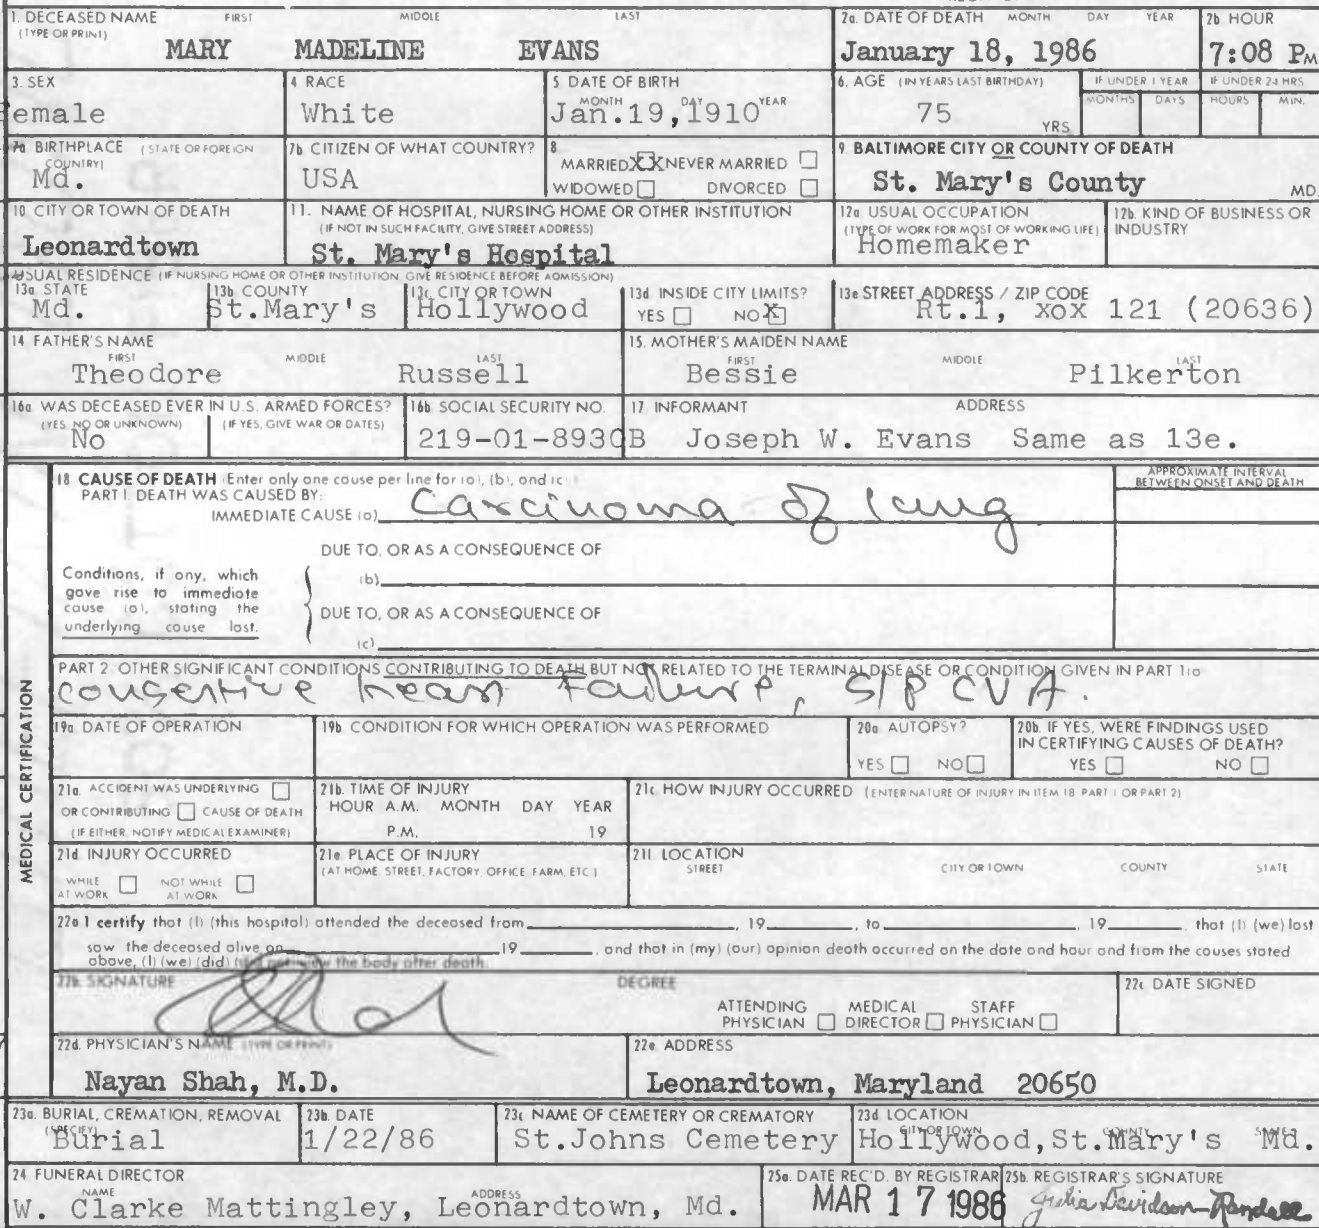 1. DECEASED NAME FIRST MIDDLE LAST
(TYPE OR PRINT)
MARY MADELINE EVANS
2a. DATE OF DEATH MONTH DAY YEAR
January 18, 1986
2b HOUR
7:08 PM
3. SEX
emale
4 RACE
White
5 DATE OF BIRTH
MONTH DAY YEAR
Jan.19,1910
6. AGE (IN YEARS LAST BIRTHDAY)
75 YRS
IF UNDER 1 YEAR
MONTHS DAYS
IF UNDER 24 HRS
HOURS MIN.
7a BIRTHPLACE (STATE OR FOREIGN
COUNTRY)
Md.
7b CITIZEN OF WHAT COUNTRY?
USA
8
MARRIED XX NEVER MARRIED
WIDOWED DIVORCED
9 BALTIMORE CITY OR COUNTY OF DEATH
St. Mary's County MD.
10 CITY OR TOWN OF DEATH
Leonardtown
11. NAME OF HOSPITAL, NURSING HOME OR OTHER INSTITUTION
(IF NOT IN SUCH FACILITY, GIVE STREET ADDRESS)
St. Mary's Hospital
12a USUAL OCCUPATION
(TYPE OF WORK FOR MOST OF WORKING LIFE)
Homemaker
12b. KIND OF BUSINESS OR
INDUSTRY
USUAL RESIDENCE (IF NURSING HOME OR OTHER INSTITUTION GIVE RESIDENCE BEFORE ADMISSION)
13a STATE
Md.
13b COUNTY
St.Mary's
13c CITY OR TOWN
Hollywood
13d INSIDE CITY LIMITS?
YES NO X
13e STREET ADDRESS / ZIP CODE
Rt.1, xox 121 (20636)
14 FATHER'S NAME
FIRST MIDDLE LAST
Theodore Russell
15. MOTHER'S MAIDEN NAME
FIRST MIDDLE LAST
Bessie Pilkerton
16a WAS DECEASED EVER IN U.S. ARMED FORCES?
(YES, NO OR UNKNOWN) (IF YES, GIVE WAR OR DATES)
No
16b SOCIAL SECURITY NO.
219-01-8930B
17. INFORMANT ADDRESS
Joseph W. Evans Same as 13e.
18 CAUSE OF DEATH (Enter only one cause per line for (a), (b), and (c).)
PART I. DEATH WAS CAUSED BY:
IMMEDIATE CAUSE (a) Carcinoma of lung
APPROXIMATE INTERVAL
BETWEEN ONSET AND DEATH
DUE TO, OR AS A CONSEQUENCE OF
Conditions, if any, which
gave rise to immediate
cause (a), stating the
underlying cause last.
(b)
DUE TO, OR AS A CONSEQUENCE OF
(c)
MEDICAL CERTIFICATION
PART 2 OTHER SIGNIFICANT CONDITIONS CONTRIBUTING TO DEATH BUT NOT RELATED TO THE TERMINAL DISEASE OR CONDITION GIVEN IN PART 1(a)
congestive heart failure, S/P CVA.
19a DATE OF OPERATION
19b CONDITION FOR WHICH OPERATION WAS PERFORMED
20a AUTOPSY?
YES NO
20b. IF YES, WERE FINDINGS USED
IN CERTIFYING CAUSES OF DEATH?
YES NO
21a. ACCIDENT WAS UNDERLYING
OR CONTRIBUTING CAUSE OF DEATH
(IF EITHER, NOTIFY MEDICAL EXAMINER)
21b. TIME OF INJURY
HOUR A.M. MONTH DAY YEAR
P.M. 19
21c HOW INJURY OCCURRED (ENTER NATURE OF INJURY IN ITEM 18 PART 1 OR PART 2)
21d INJURY OCCURRED
WHILE AT WORK NOT WHILE AT WORK
21e PLACE OF INJURY
(AT HOME, STREET, FACTORY, OFFICE, FARM, ETC.)
21f LOCATION
STREET CITY OR TOWN COUNTY STATE
22a I certify that (I) (this hospital) attended the deceased from , 19 , to , 19 , that (I) (we) last
saw the deceased alive on 19 , and that in (my) (our) opinion death occurred on the date and hour and from the causes stated
above, (I) (we) (did) (did not) view the body after death.
22b. SIGNATURE
DEGREE
ATTENDING PHYSICIAN MEDICAL DIRECTOR STAFF PHYSICIAN
22c DATE SIGNED
22d. PHYSICIAN'S NAME (TYPE OR PRINT)
Nayan Shah, M.D.
22e ADDRESS
Leonardtown, Maryland 20650
23a. BURIAL, CREMATION, REMOVAL
(SPECIFY)
Burial
23b. DATE
1/22/86
23c NAME OF CEMETERY OR CREMATORY
St.Johns Cemetery
23d LOCATION
CITY OR TOWN COUNTY STATE
Hollywood,St.Mary's Md.
24 FUNERAL DIRECTOR
NAME ADDRESS
W. Clarke Mattingley, Leonardtown, Md.
25a. DATE REC'D. BY REGISTRAR
MAR 17 1986
25b. REGISTRAR'S SIGNATURE
Julia Davidson-Randall